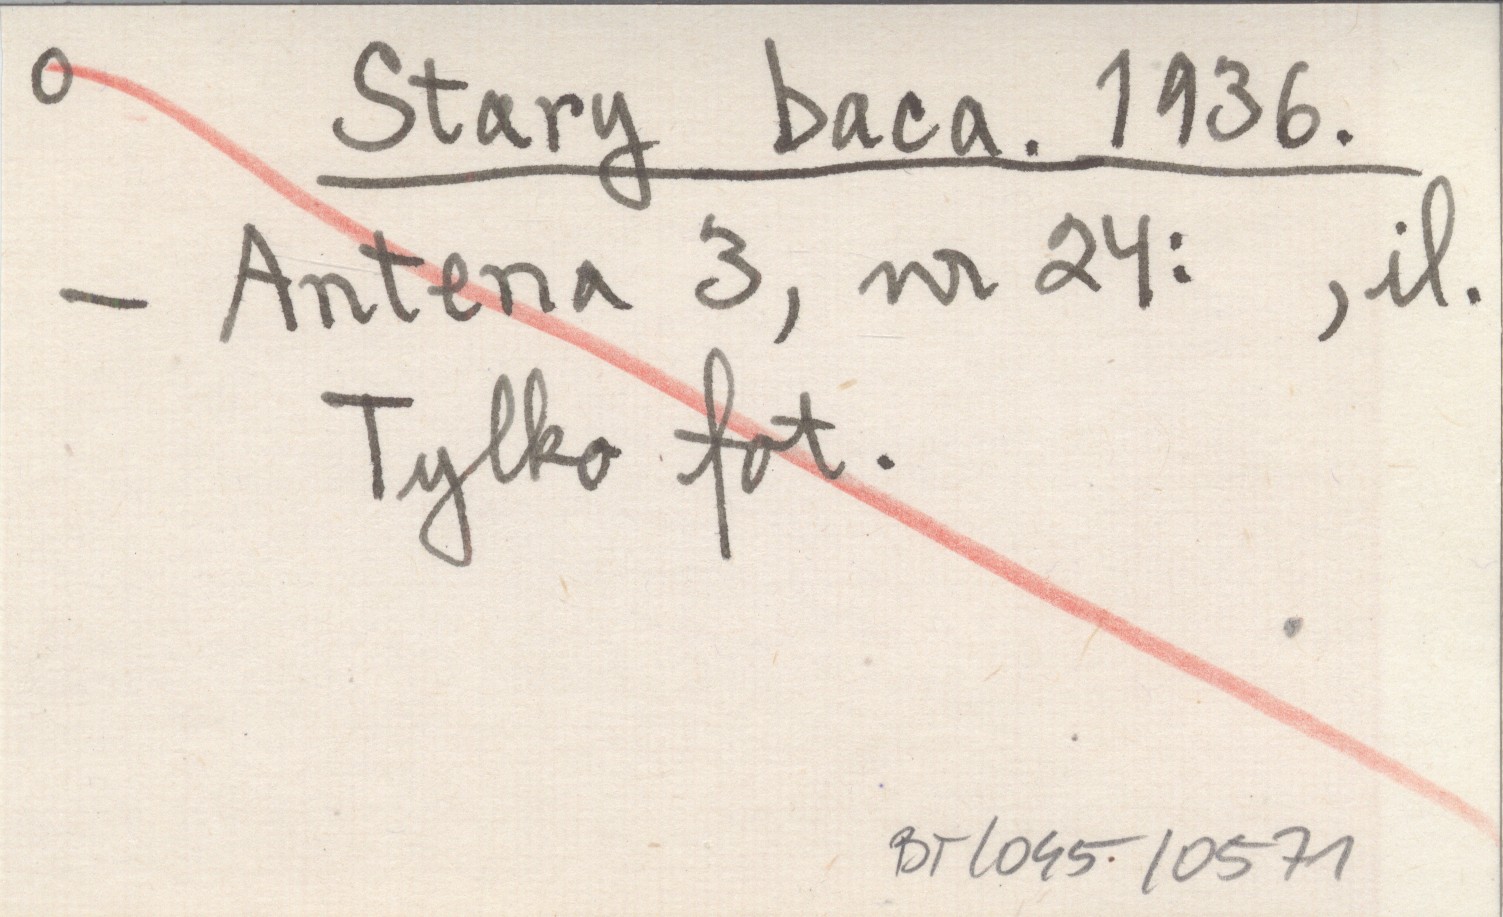 o Stary baca. 1936.
– Antena 3, nr 24: , il.
Tylko fot.
BT/045/0571